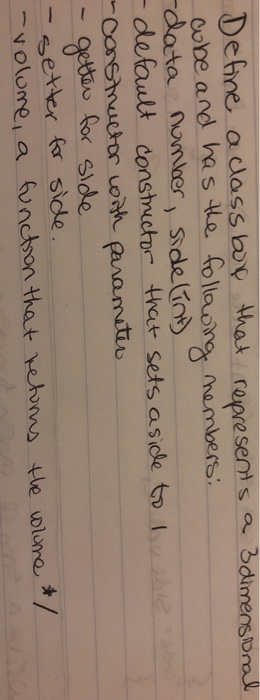 Define a class box that represents a 3dimensional
cube and has the following members:
-data number, side(int)
- default constructor that sets aside to 1
-constructor with parameter
- getter for side
- setter for side.
- volume, a function that returns the volume */